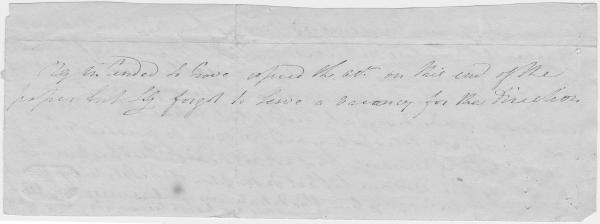 intended to have copied the act. on this end of the
paper but forgot to leave a vacancy for the Direction